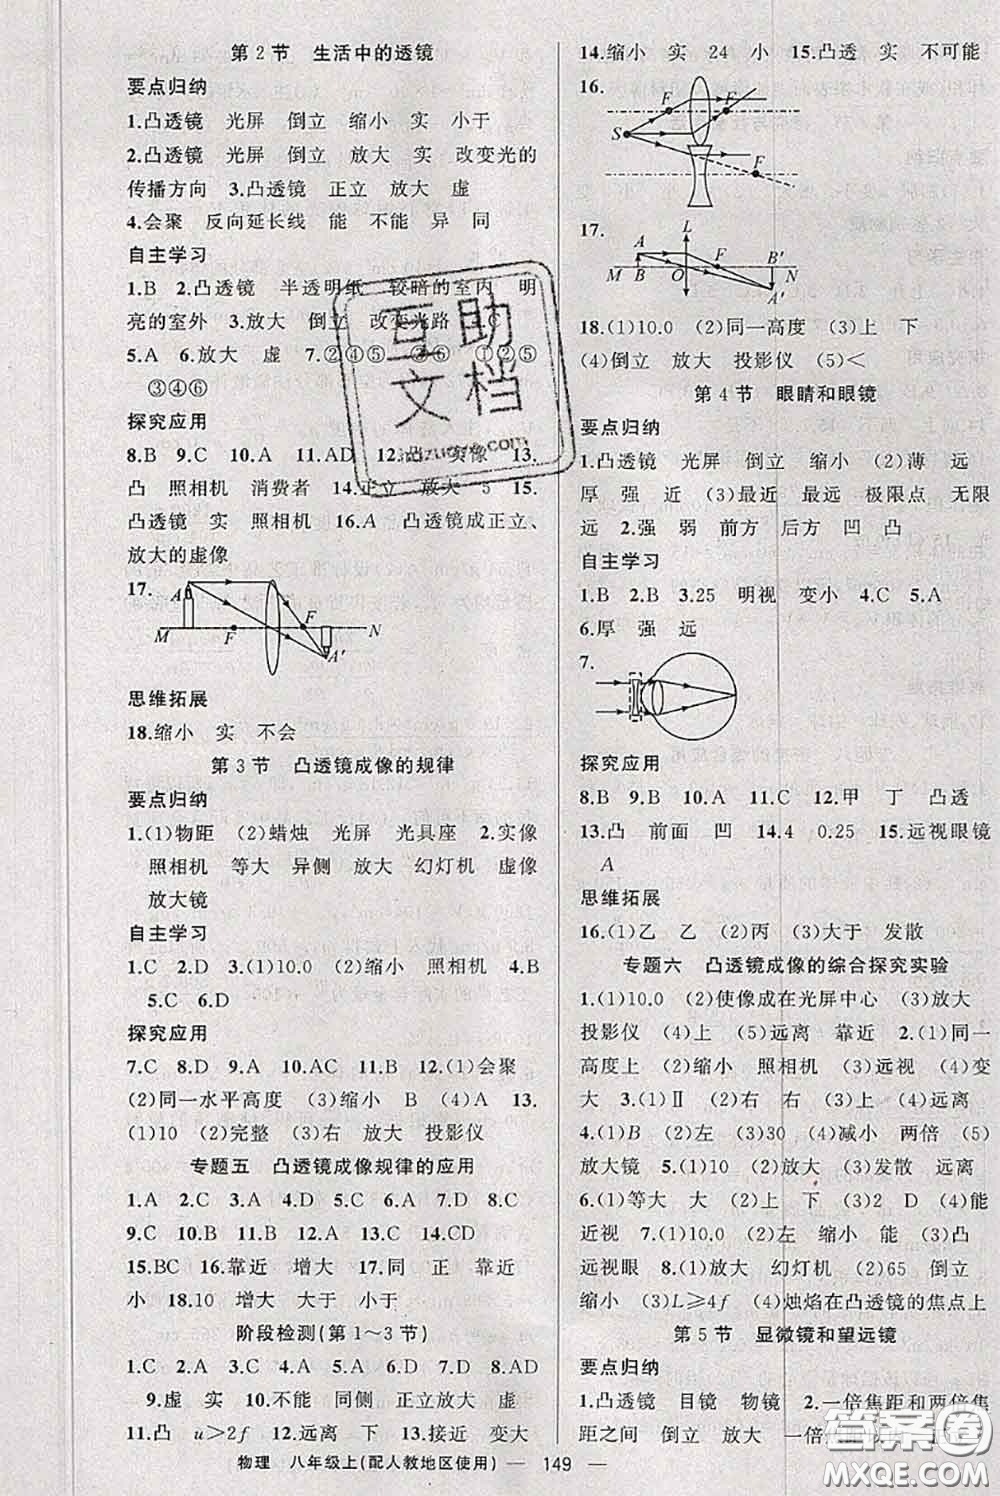 第2节　生活中的透镜
要点归纳
1.凸透镜　光屏　倒立　缩小　实　小于
2.凸透镜　光屏　倒立　放大　实　改变光的
传播方向　3.凸透镜　正立　放大　虚
4.会聚　反向延长线　能　不能　异　同
自主学习
1.B　2.凸透镜　半透明纸　较暗的室内　明
亮的室外　3.放大　倒立　改变光路　4.C
5.A　6.放大　虚　7.②④⑤　③⑥　①②⑤
③④⑥
探究应用
8.B　9.C　10.A　11.AD　12.凸　实像　13.
凸　照相机　消费者　14.正立　放大　5　15.
凸透镜　实　照相机　16.A　凸透镜成正立、
放大的虚像
17.
A
M　F　F　N
A′
思维拓展
18.缩小　实　不会
第3节　凸透镜成像的规律
要点归纳
1.(1)物距　(2)蜡烛　光屏　光具座　2.实像
照相机　等大　异侧　放大　幻灯机　虚像
放大镜
自主学习
1.C　2.D　3.(1)10.0　(2)缩小　照相机　4.B
5.C　6.D
探究应用
7.C　8.D　9.A　10.AC　11.B　12.(1)会聚
(2)同一水平高度　(3)缩小　B　(4)A　13.
(1)10　(2)完整　(3)右　放大　投影仪
专题五　凸透镜成像规律的应用
1.A　2.C　3.B　4.A　5.D　6.D　7.B　8.C
9.C　10.B　11.B　12.C　13.AC　14.CD
15.BC　16.靠近　增大　17.同　正　靠近
小　18.10　增大　大于　小于
阶段检测(第1～3节)
1.C　2.A　3.B　4.D　5.D　6.C　7.D　8.AD
9.虚　实　10.不能　同侧　正立放大　虚
11.凸　u＞2f　12.远离　下　13.接近　变大
14.缩小　实　24　小　15.凸透　实　不可能
16.
F　F
S
F
17.
L
A　F　B′
M　B　O　N
A′
18.(1)10.0　(2)同一高度　(3)上　下
(4)倒立　放大　投影仪　(5)＜
第4节　眼睛和眼镜
要点归纳
1.凸透镜　光屏　倒立　缩小　(2)薄　远
厚　强　近　(3)最近　最远　极限点　无限
远　2.强　弱　前方　后方　凹　凸
自主学习
1.B　2.B　3.25　明视　变小　4.C　5.A
6.厚　强　远
7.
探究应用
8.B　9.B　10.A　11.C　12.甲　丁　凸透
13.凸　前面　凹　14.4　0.25　15.远视眼镜
A
思维拓展
16.(1)乙　乙　(2)丙　(3)大于　发散
专题六　凸透镜成像的综合探究实验
1.(1)10.0　(2)使像成在光屏中心　(3)放大
投影仪　(4)上　(5)远离　靠近　2.(1)同一
高度上　(2)缩小　照相机　(3)远视　(4)变
大　3.(1)Ⅱ　(2)右　右　(3)上　(4)远离
4.(1)B　(2)左　(3)30　(4)减小　两倍　(5)
放大镜　5.(1)10　(2)放大　(3)发散　远离
6.(1)等大　大　(2)上　下　(3)2　D　(4)能
近视　7.(1)10.0　(2)左　缩小　能　(3)凸
远视眼　8.(1)放大　幻灯机　(2)65　倒立
缩小　(3)L≥4f　(4)烛焰在凸透镜的焦点上
第5节　显微镜和望远镜
要点归纳
1.凸透镜　目镜　物镜　2.一倍焦距和两倍焦
距之间　倒立　放大　一倍
物理　八年级上(配人教地区使用)　—　149　—
互助
文档
答案圈
MXQE.COM